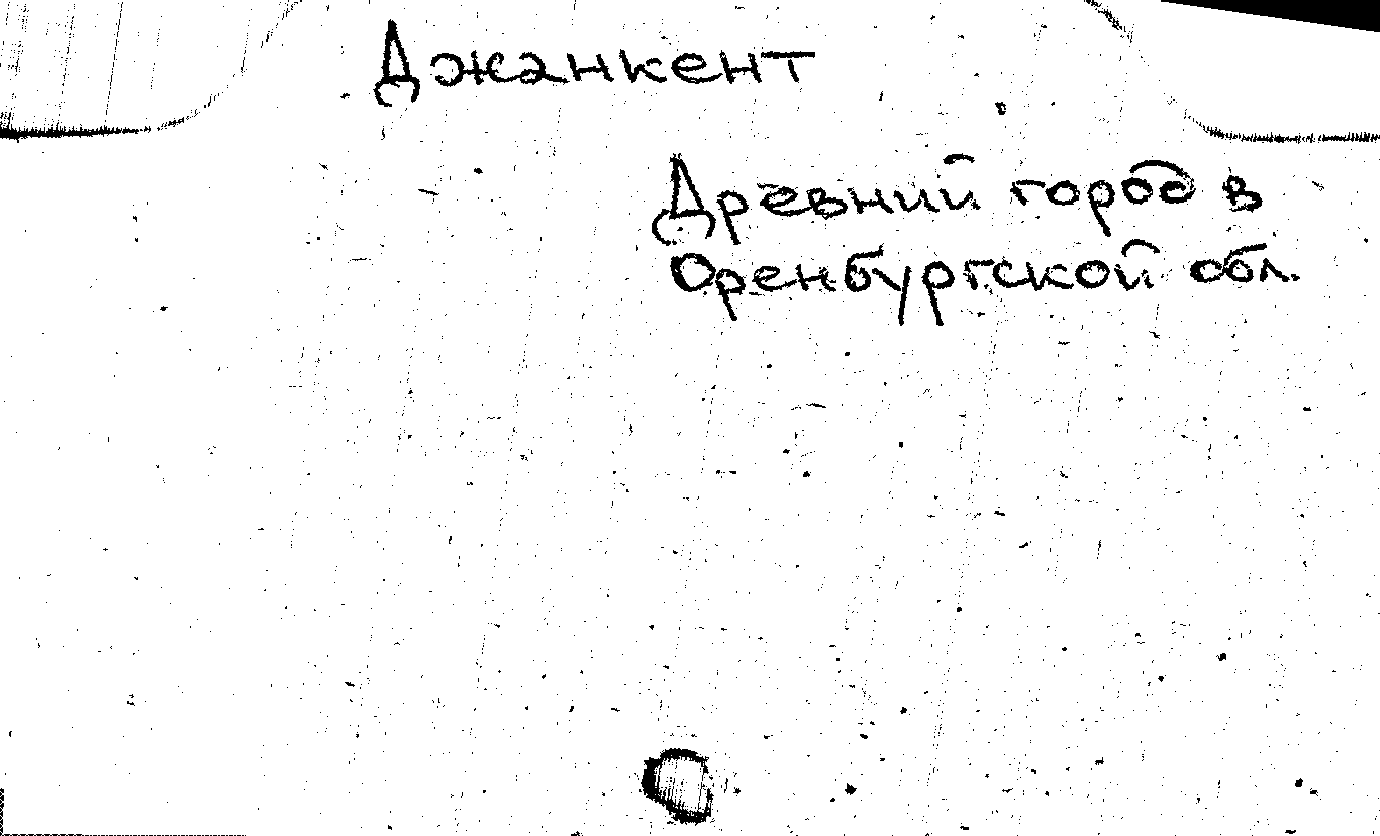 Джанкент
Древний город в
Оренбургской обл.